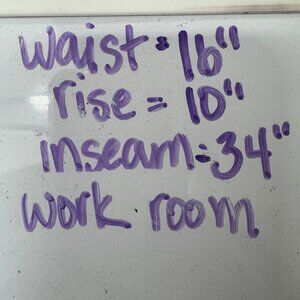 waist = 16"
rise = 10"
inseam = 34"
work room